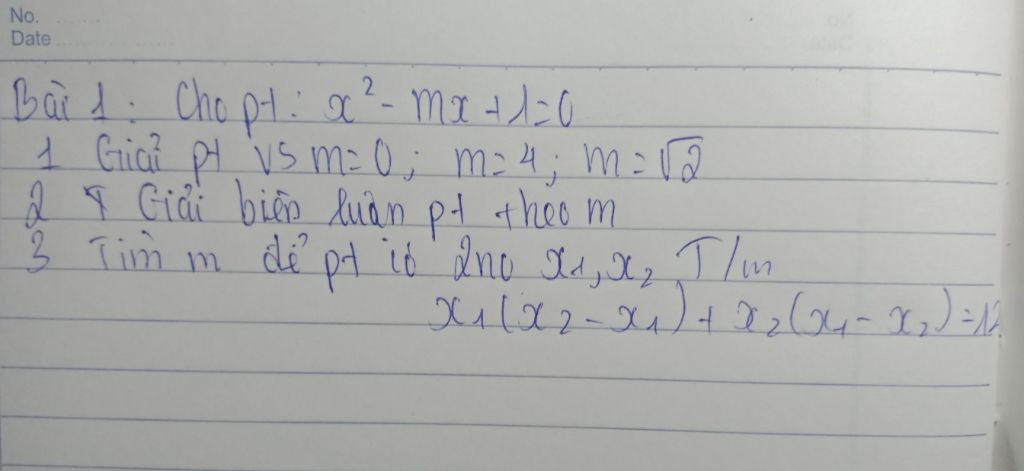 No.
Date
Bài 1: Cho pt: x² - mx + 1 = 0
1 Giải pt vs m = 0; m = 4; m = √2
2 Giải biện luận pt theo m
3 Tìm m để pt có 2no x₁, x₂ T/m
x₁(x₂ - x₁) + x₂(x₁ - x₂) = 12